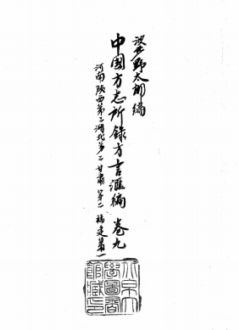 波多野太郎編
中國方志所錄方言滙編 卷九
河南 陝西第二 湖北第二 甘肅第二 福建第一